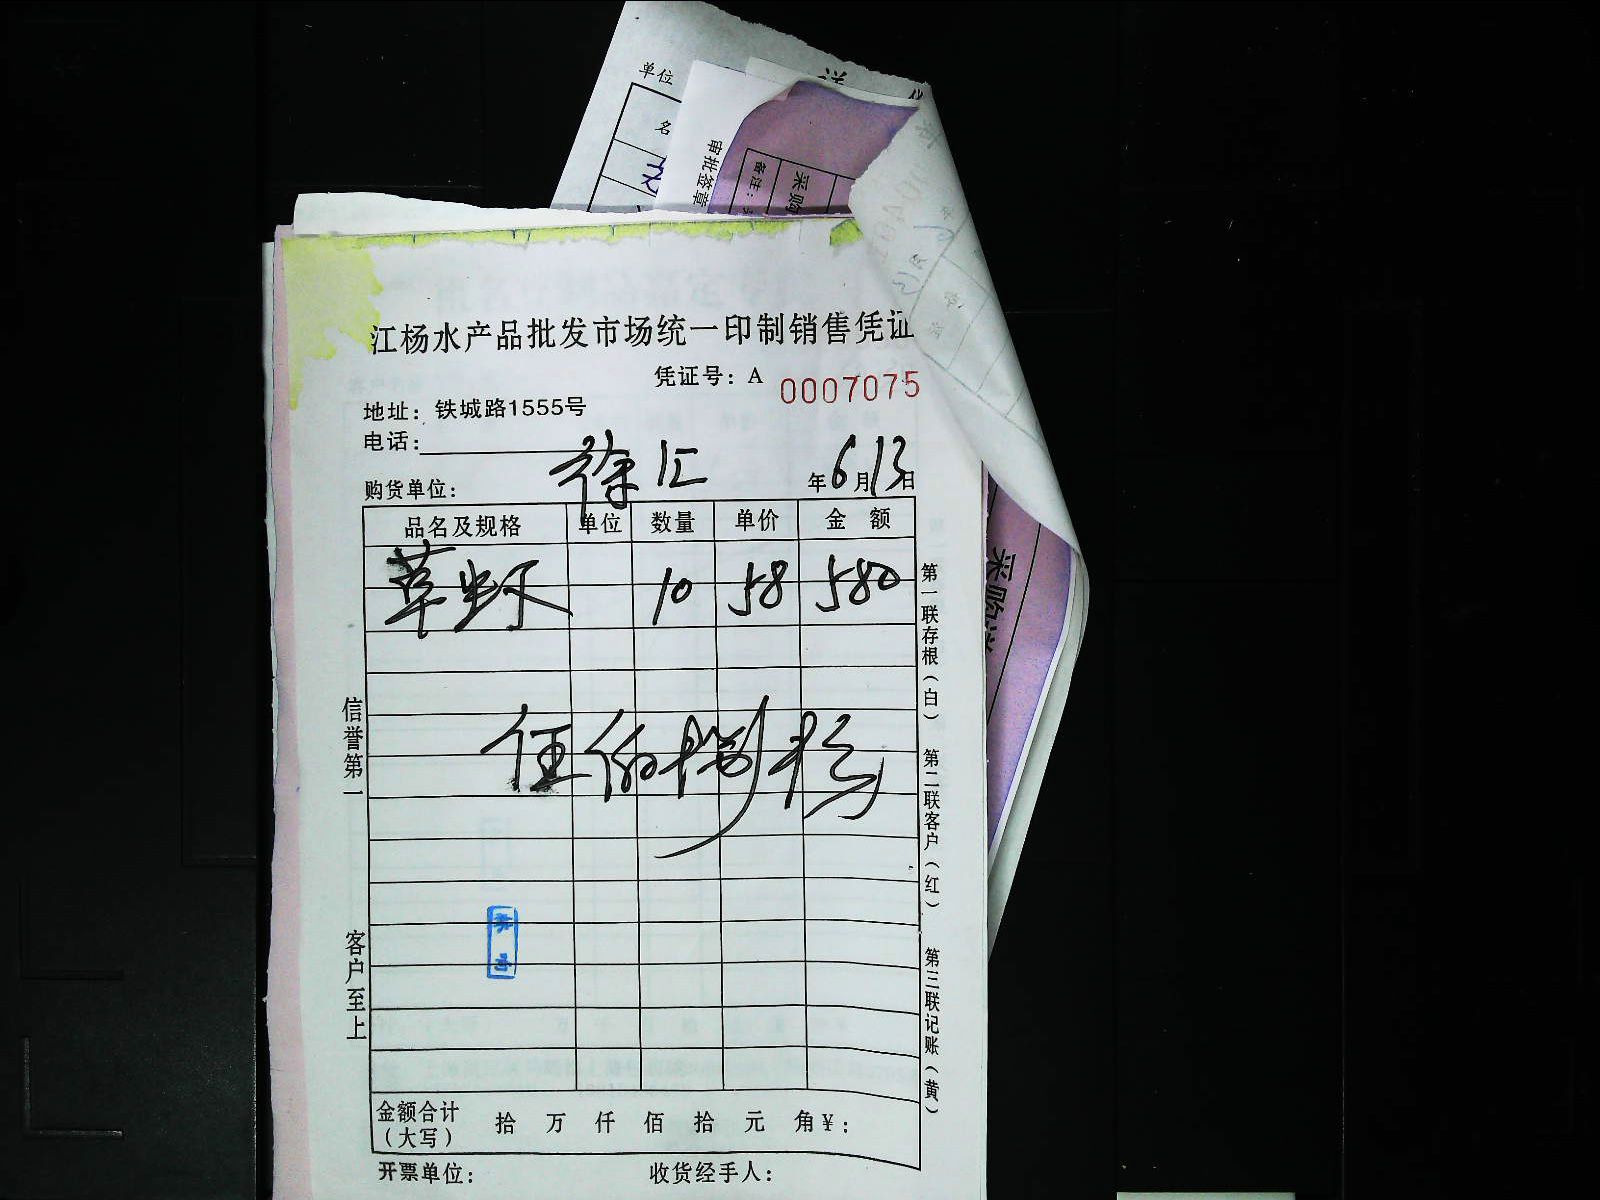 单位
名
审批签章
备注：
采购
江杨水产品批发市场统一印制销售凭证
凭证号：A 0007075
地址：铁城路1555号
电话：
购货单位： 徐汇 年6月13日
品名及规格 单位 数量 单价 金额
草虾 10 58 580
伍佰捌拾
金额合计（大写） 拾 万 仟 佰 拾 元 角￥：
开票单位： 收货经手人：
信誉第一
客户至上
第一联存根（白）
第二联客户（红）
第三联记账（黄）
采购